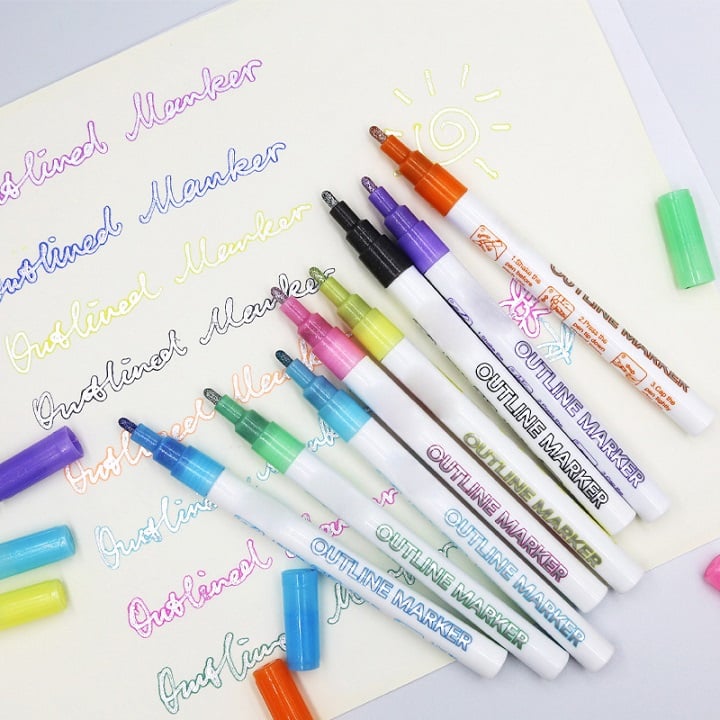 utlined Marker
Outlined Marker
Outlined Marker
Outlined Marker
Outlined Mark
Outlined
Outlined Marker
Outlined M
1.Shake the
pen before
2.Press the
pen tip down
3.Cap the
pen tightly
OUTLINE MARKER
OUTLINE MARKER
OUTLINE MARKER
OUTLINE MARKER
OUTLINE MARKER
OUTLINE MARKER
OUTLINE MARKER
OUTLINE MARKER